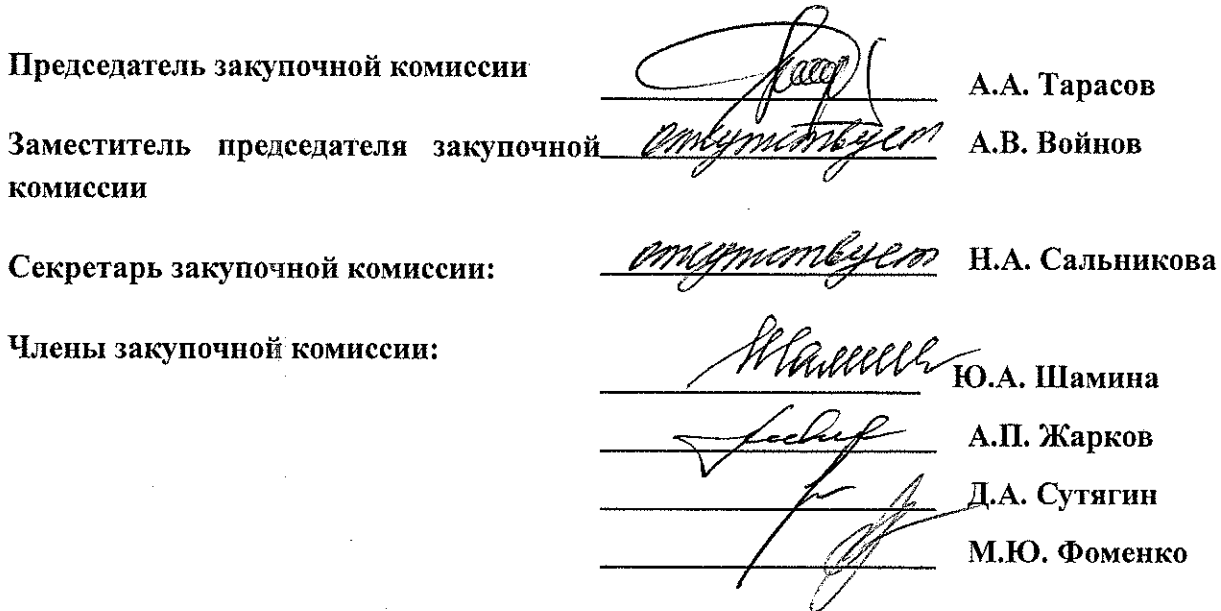 Председатель закупочной комиссии
А.А. Тарасов
Заместитель председателя закупочной отсутствует А.В. Войнов
комиссии
Секретарь закупочной комиссии: отсутствует Н.А. Сальникова
Члены закупочной комиссии:
Ю.А. Шамина
А.П. Жарков
Д.А. Сутягин
М.Ю. Фоменко